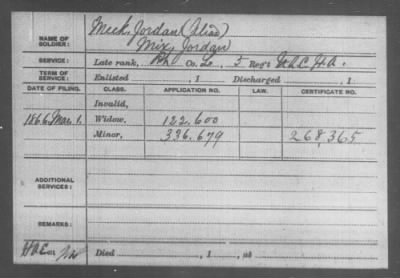 NAME OF SOLDIER: Meek, Jordan (Alias)
Mix, Jordan
SERVICE: Late rank, Co. 5 Reg't U.S.C.H.A.
TERM OF SERVICE: Enlisted , 1 Discharged , 1
DATE OF FILING. CLASS. APPLICATION NO. LAW. CERTIFICATE NO.
Invalid,
1866 Mar. 1. Widow, 122.600
Minor, 336.679 268,365
ADDITIONAL SERVICES:
REMARKS:
Died , 1 , at